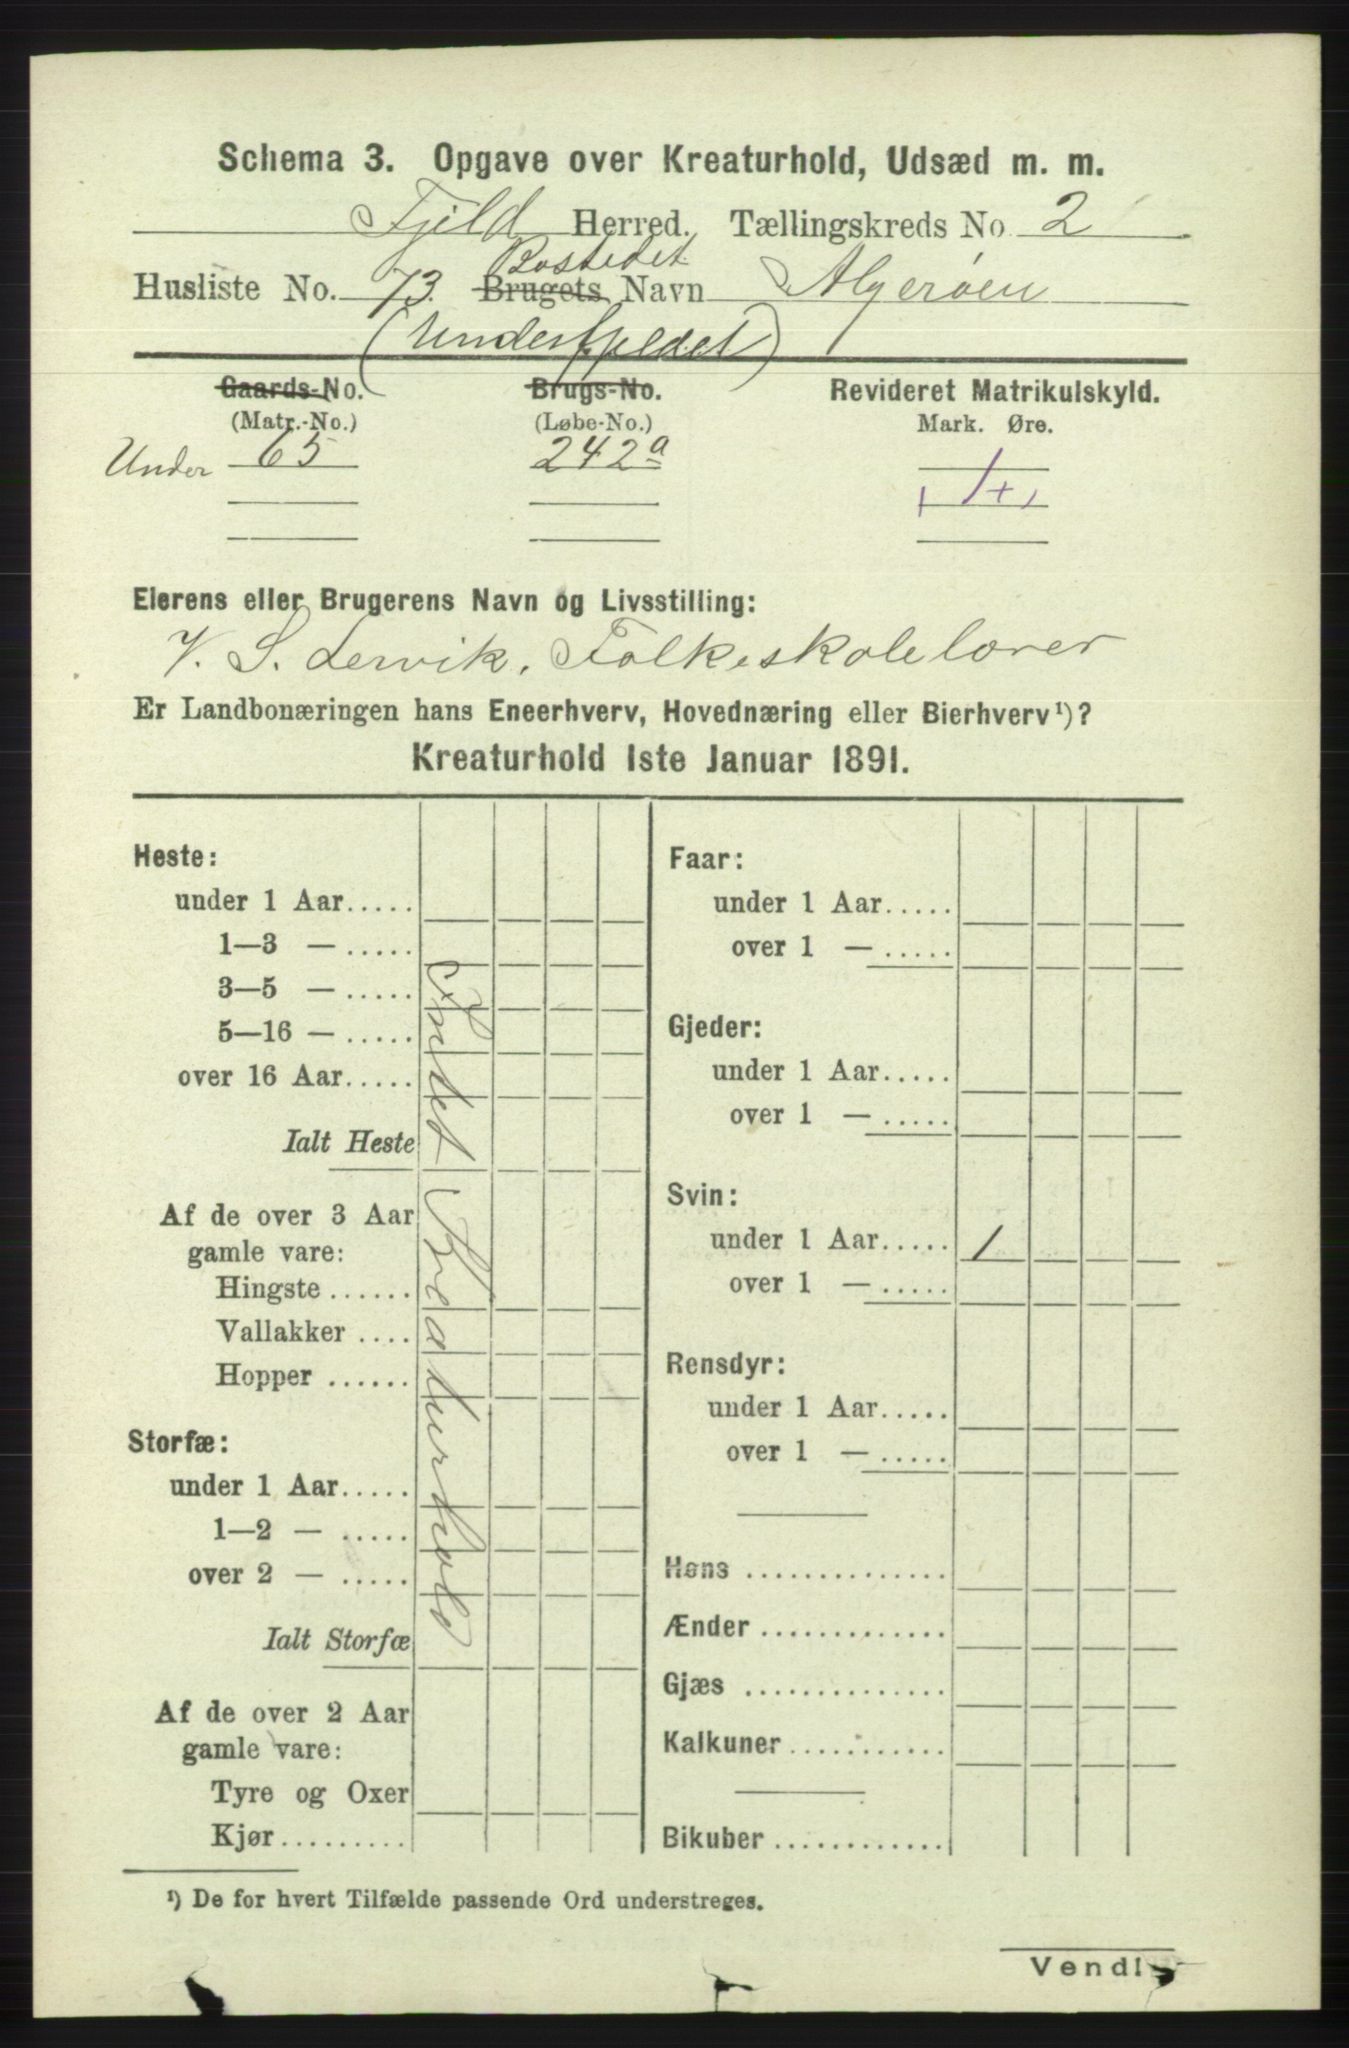 Schema 3. Opgave over Kreaturhold, Udsæd m. m.
Fjeld Herred. Tællingskreds No. 2
Bostedet
Husliste No. 73. Brugets Navn Algerøen
(Underfjeldet)
Gaards-No. Brugs-No. Revideret Matrikulskyld.
(Matr.-No.) (Løbe-No.) Mark. Øre.
Under 65 242a
Eierens eller Brugerens Navn og Livsstilling:
V. S. Lervik, Folkeskolelærer
Er Landbonæringen hans Eneerhverv, Hovednæring eller Bierhverv¹)?
Kreaturhold 1ste Januar 1891.
Heste:
under 1 Aar.....
1—3 — .....
3—5 — .....
5—16 — .....
over 16 Aar.....
Ialt Heste
Af de over 3 Aar
gamle vare:
Hingste ......
Vallakker ....
Hopper ......
Storfæ:
under 1 Aar.....
1—2 — .....
over 2 — .....
Ialt Storfæ
Af de over 2 Aar
gamle vare:
Tyre og Oxer
Kjør.........
Intet Kreaturhold
Faar:
under 1 Aar.....
over 1 — .....
Gjeder:
under 1 Aar.....
over 1 — .....
Svin:
under 1 Aar..... 1
over 1 — .....
Rensdyr:
under 1 Aar.....
over 1 — .....
Høns ..............
Ænder .............
Gjæs ..............
Kalkuner...........
Bikuber ............
¹) De for hvert Tilfælde passende Ord understreges.
Vend!